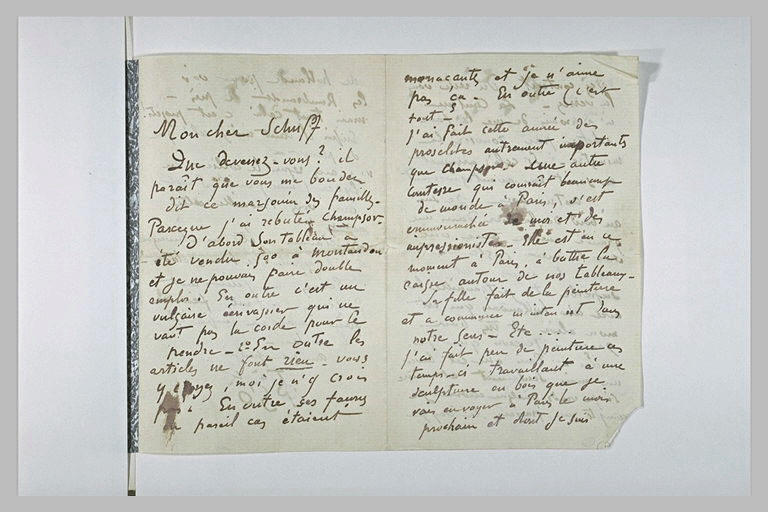 Mon cher Schuff
Que devenez-vous? il
paraît que vous me boudez
dit ce marsouin des familles.
Parceque j'ai rebuté Champsor.
D'abord son tableau a
été vendu 500 à Montandon
et je ne pouvais faire double
emploi. En outre c'est un
vulgaire écrivassier qui ne
vaut pas la corde pour le
pendre - 2º En outre les
articles ne font rien - vous
y croyez, moi je n'y crois
pas. En outre ses faveurs
en pareil cas étaient
menacantes et je n'aime
pas ça. En outre (c'est
tout -
j'ai fait cette année des
proselites autrement importants
que Champsor. Une autre
Comtesse qui connaît beaucoup
de monde à Paris, s'est
de moi et des
impressionistes - Elle est en ce
moment à Paris, à battre la
caisse autour de nos tableaux -
Sa fille fait de la peinture
et a commencé maintenant dans
notre sens - Etc....
j'ai fait peu de peinture ces
temps-ci travaillant à une
sculpture en bois que je
vais envoyer à Paris le mois
prochain et dont je suis